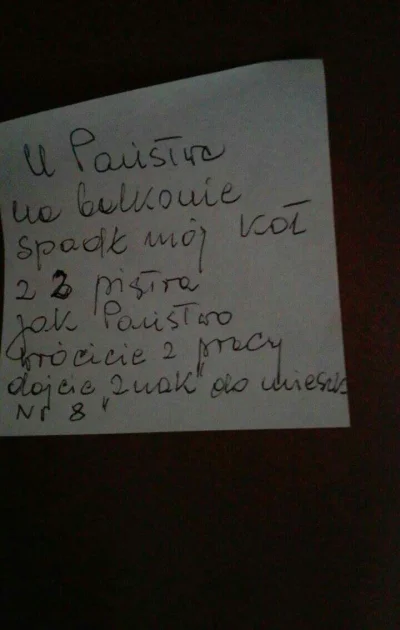 U Państwa
na balkonie
spadł mój KOŁ
z 3 piętra
jak Państwo
wrócicie z pracy
dajcie "znak" do mieszk
Nr 8